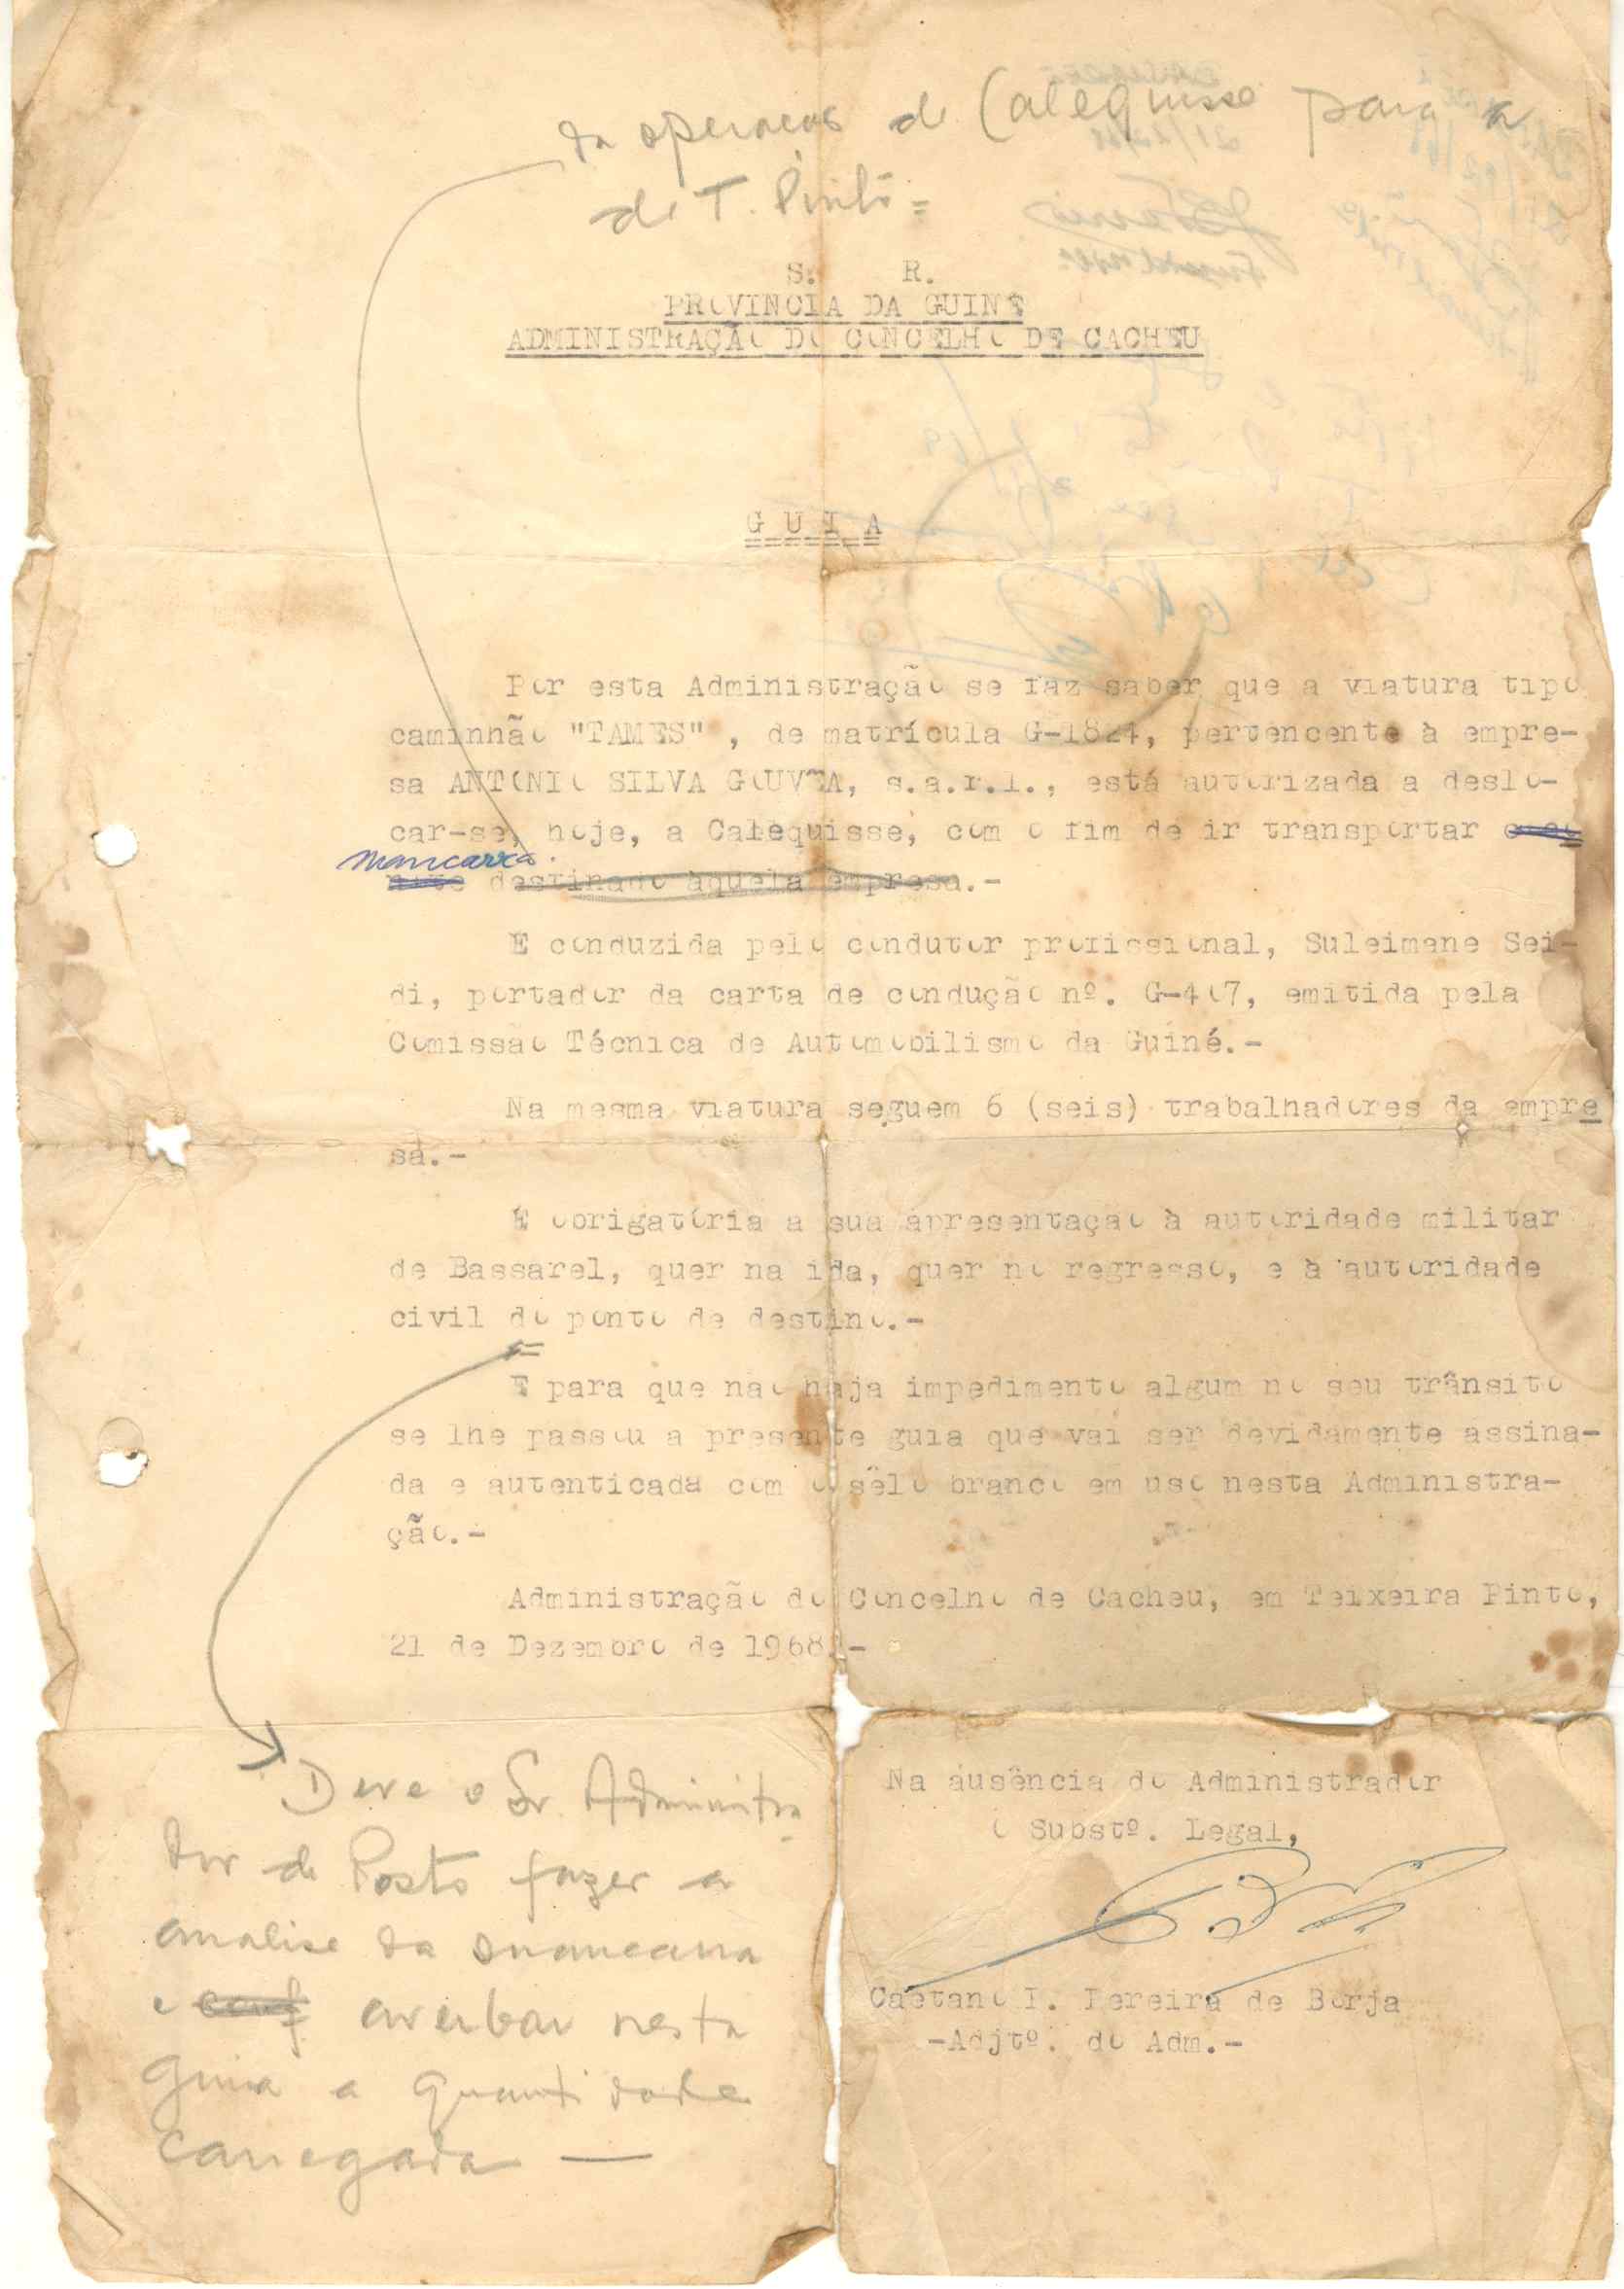 da operação de Calequisse para a
de T. Pinto =
S. R.
PROVINCIA DA GUINÉ
ADMINISTRAÇÃO DO CONCELHO DE CACHEU
G U I A
Por esta Administração se faz saber que a viatura tipo
caminhão "TAMES" , de matrícula G-1824, pertencente à empre-
sa ANTONIO SILVA GOUVÊA, s.a.r.l., está autorizada a deslo-
car-se, hoje, a Calequisse, com o fim de ir transportar
mancarra.
destinado àquela empresa.-
E conduzida pelo condutor profissional, Suleimane Sei-
di, portador da carta de condução nº. G-407, emitida pela
Comissão Técnica de Automobilismo da Guiné.-
Na mesma viatura seguem 6 (seis) trabalhadores da empre
sa.-
É obrigatória a sua apresentação à autoridade militar
de Bassarel, quer na ida, quer no regresso, e à autoridade
civil do ponto de destino.-
E para que não haja impedimento algum no seu trânsito
se lhe passou a presente guia que vai ser devidamente assina-
da e autenticada com o sêlo branco em uso nesta Administra-
ção.-
Administração do Concelho de Cacheu, em Teixeira Pinto,
21 de Dezembro de 1968.-
Deve o Sr. Administra
dor de Posto fazer a
analise da mancarra
e averbar nesta
guia a quantidade
carregada —
Na ausência do Administrador
O Substº. Legal,
Caetano I. Pereira de Borja
-Adjtº. do Adm.-